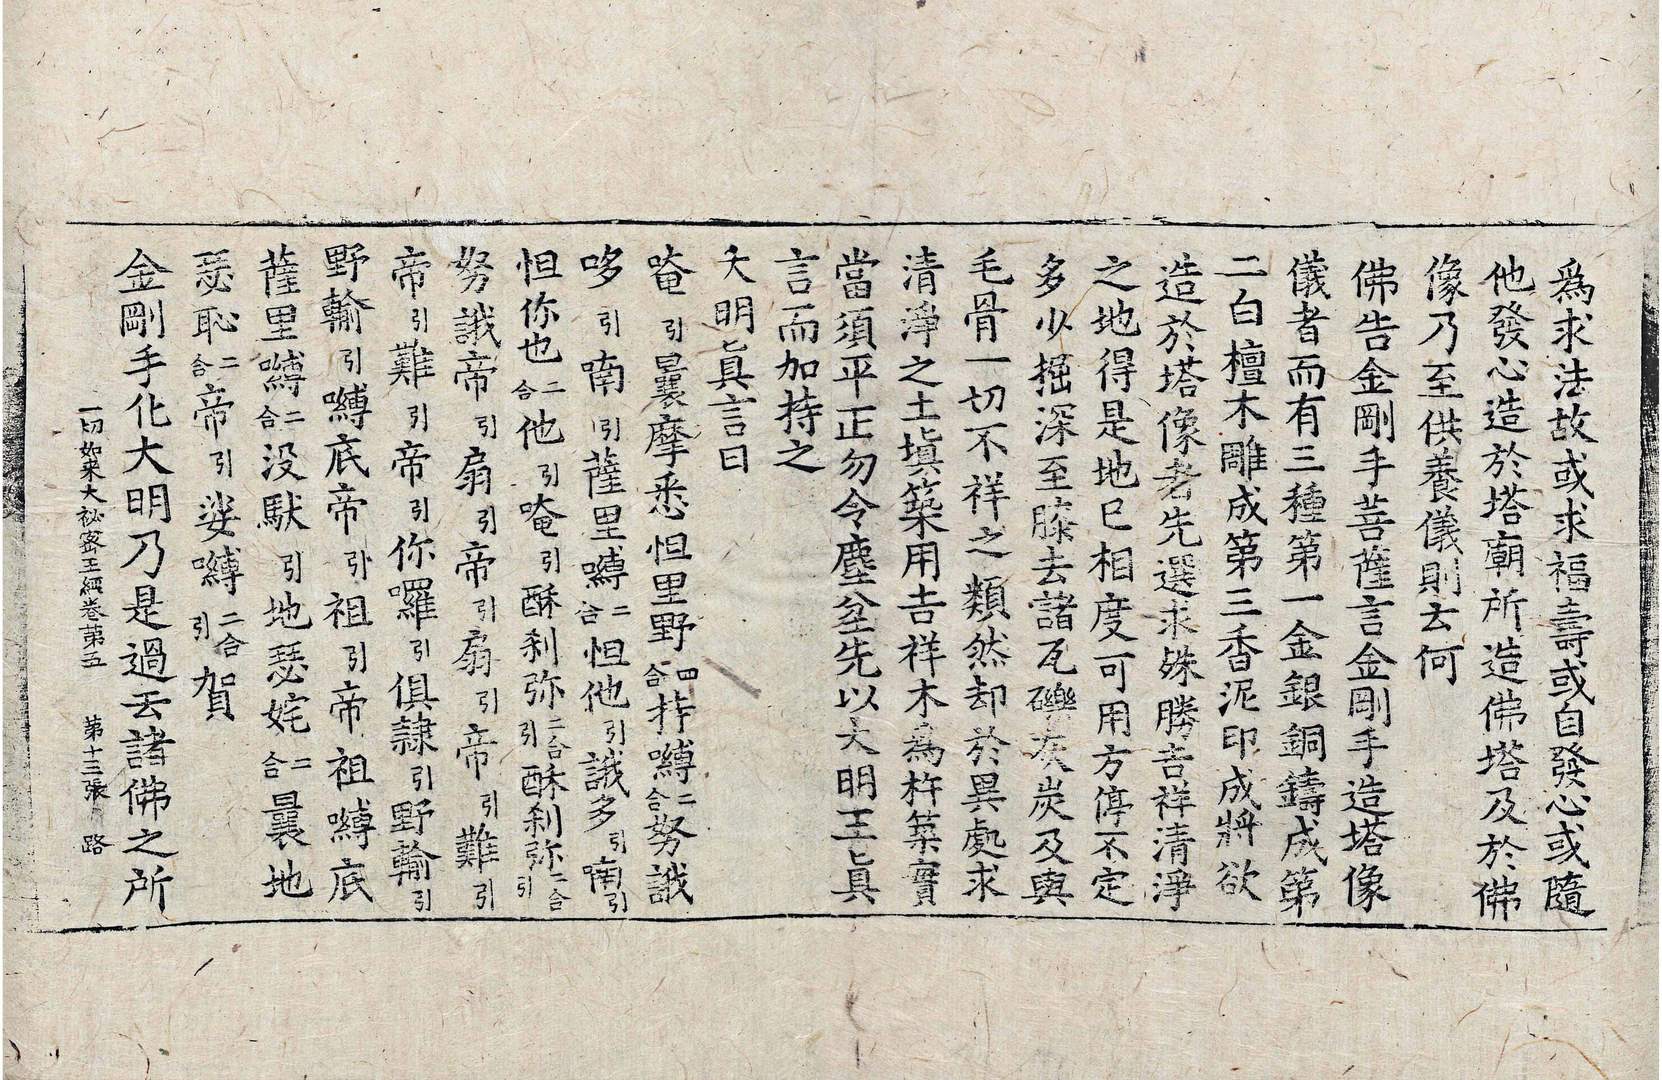 爲求法故或求福壽或自發心或隨
他發心造於塔廟所造佛塔及於佛
像乃至供養儀則云何
佛告金剛手菩薩言金剛手造塔像
儀者而有三種第一金銀銅鑄成第
二白檀木雕成第三香泥印成將欲
造於塔像者先選求殊勝吉祥清淨
之地得是地已相度可用方停不定
多少掘深至膝去諸瓦礫灰炭及與
毛骨一切不祥之類然却於異處求
清淨之土塡築用吉祥木爲杵築實
當須平正勿令塵坌先以大明王眞
言而加持之
大明眞言曰
唵引曩摩悉怛里野四合持嚩二合努誐
哆引喃引薩里嚩二合怛他引誐多引喃引
怛你也二合他引唵引酥刹弥二合引酥刹弥二合引
努誐帝引扇引帝引扇引帝引難引
帝引難引帝引你囉引俱隷引野輸引
野輸引嚩底帝引祖引帝祖嚩底
薩里嚩二合没馱引地瑟姹二合曩地
瑟恥二合帝引娑嚩二合引賀
金剛手化大明乃是過去諸佛之所
一切如來大祕密王經卷第五 第十三張 路